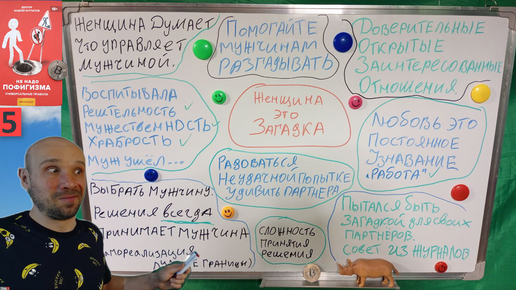 НЕ НАДО
ПОФИГИЗМА
5
ЖЕНЩИНА ДУМАЕТ
ЧТО УПРАВЛЯЕТ
МУЖЧИНОЙ.
ПОМОГАЙТЕ
МУЖЧИНАМ
РАЗГАДЫВАТЬ
ДОВЕРИТЕЛЬНЫЕ
ОТКРЫТЫЕ
ЗАИНТЕРЕСОВАННЫЕ
ОТНОШЕНИЯ
ВОСПИТЫВАЛА
РЕШТЕЛЬНОСТЬ
МУЖЕСТВЕННОСТЬ
ХРАБРОСТЬ
МУЖ УШЕЛ...
ЖЕНЩИНА
ЭТО
ЗАГАДКА
ЛЮБОВЬ ЭТО
ПОСТОЯННОЕ
УЗНАВАНИЕ
"РАБОТА"
РАДОВАТЬСЯ
НЕУДАЧНОЙ ПОПЫТКЕ
УДИВИТЬ ПАРТНЕРА
ВЫБРАТЬ МУЖЧИНУ:
РЕШЕНИЯ ВСЕГДА
ПРИНИМАЕТ МУЖЧИНА
САМОРЕАЛИЗАЦИЯ
ГРАНИЦЫ)
СЛОЖНОСТЬ
ПРИНЯТИЯ
РЕШЕНИЯ
ПЫТАЛСЯ БЫТЬ
ЗАГАДКОЙ ДЛЯ СВОИХ
ПАРТНЕРОВ.
СОВЕТ ИЗ ЖУРНАЛОВ